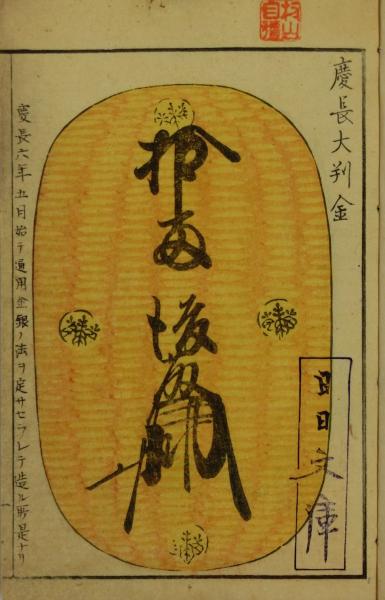 慶長大判金
拾両後藤
慶長六年五月始テ通用金銀ノ法ヲ定サセラレテ造ル所是ナリ
文庫